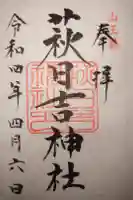 奉拝
萩日吉神社
令和四年四月六日